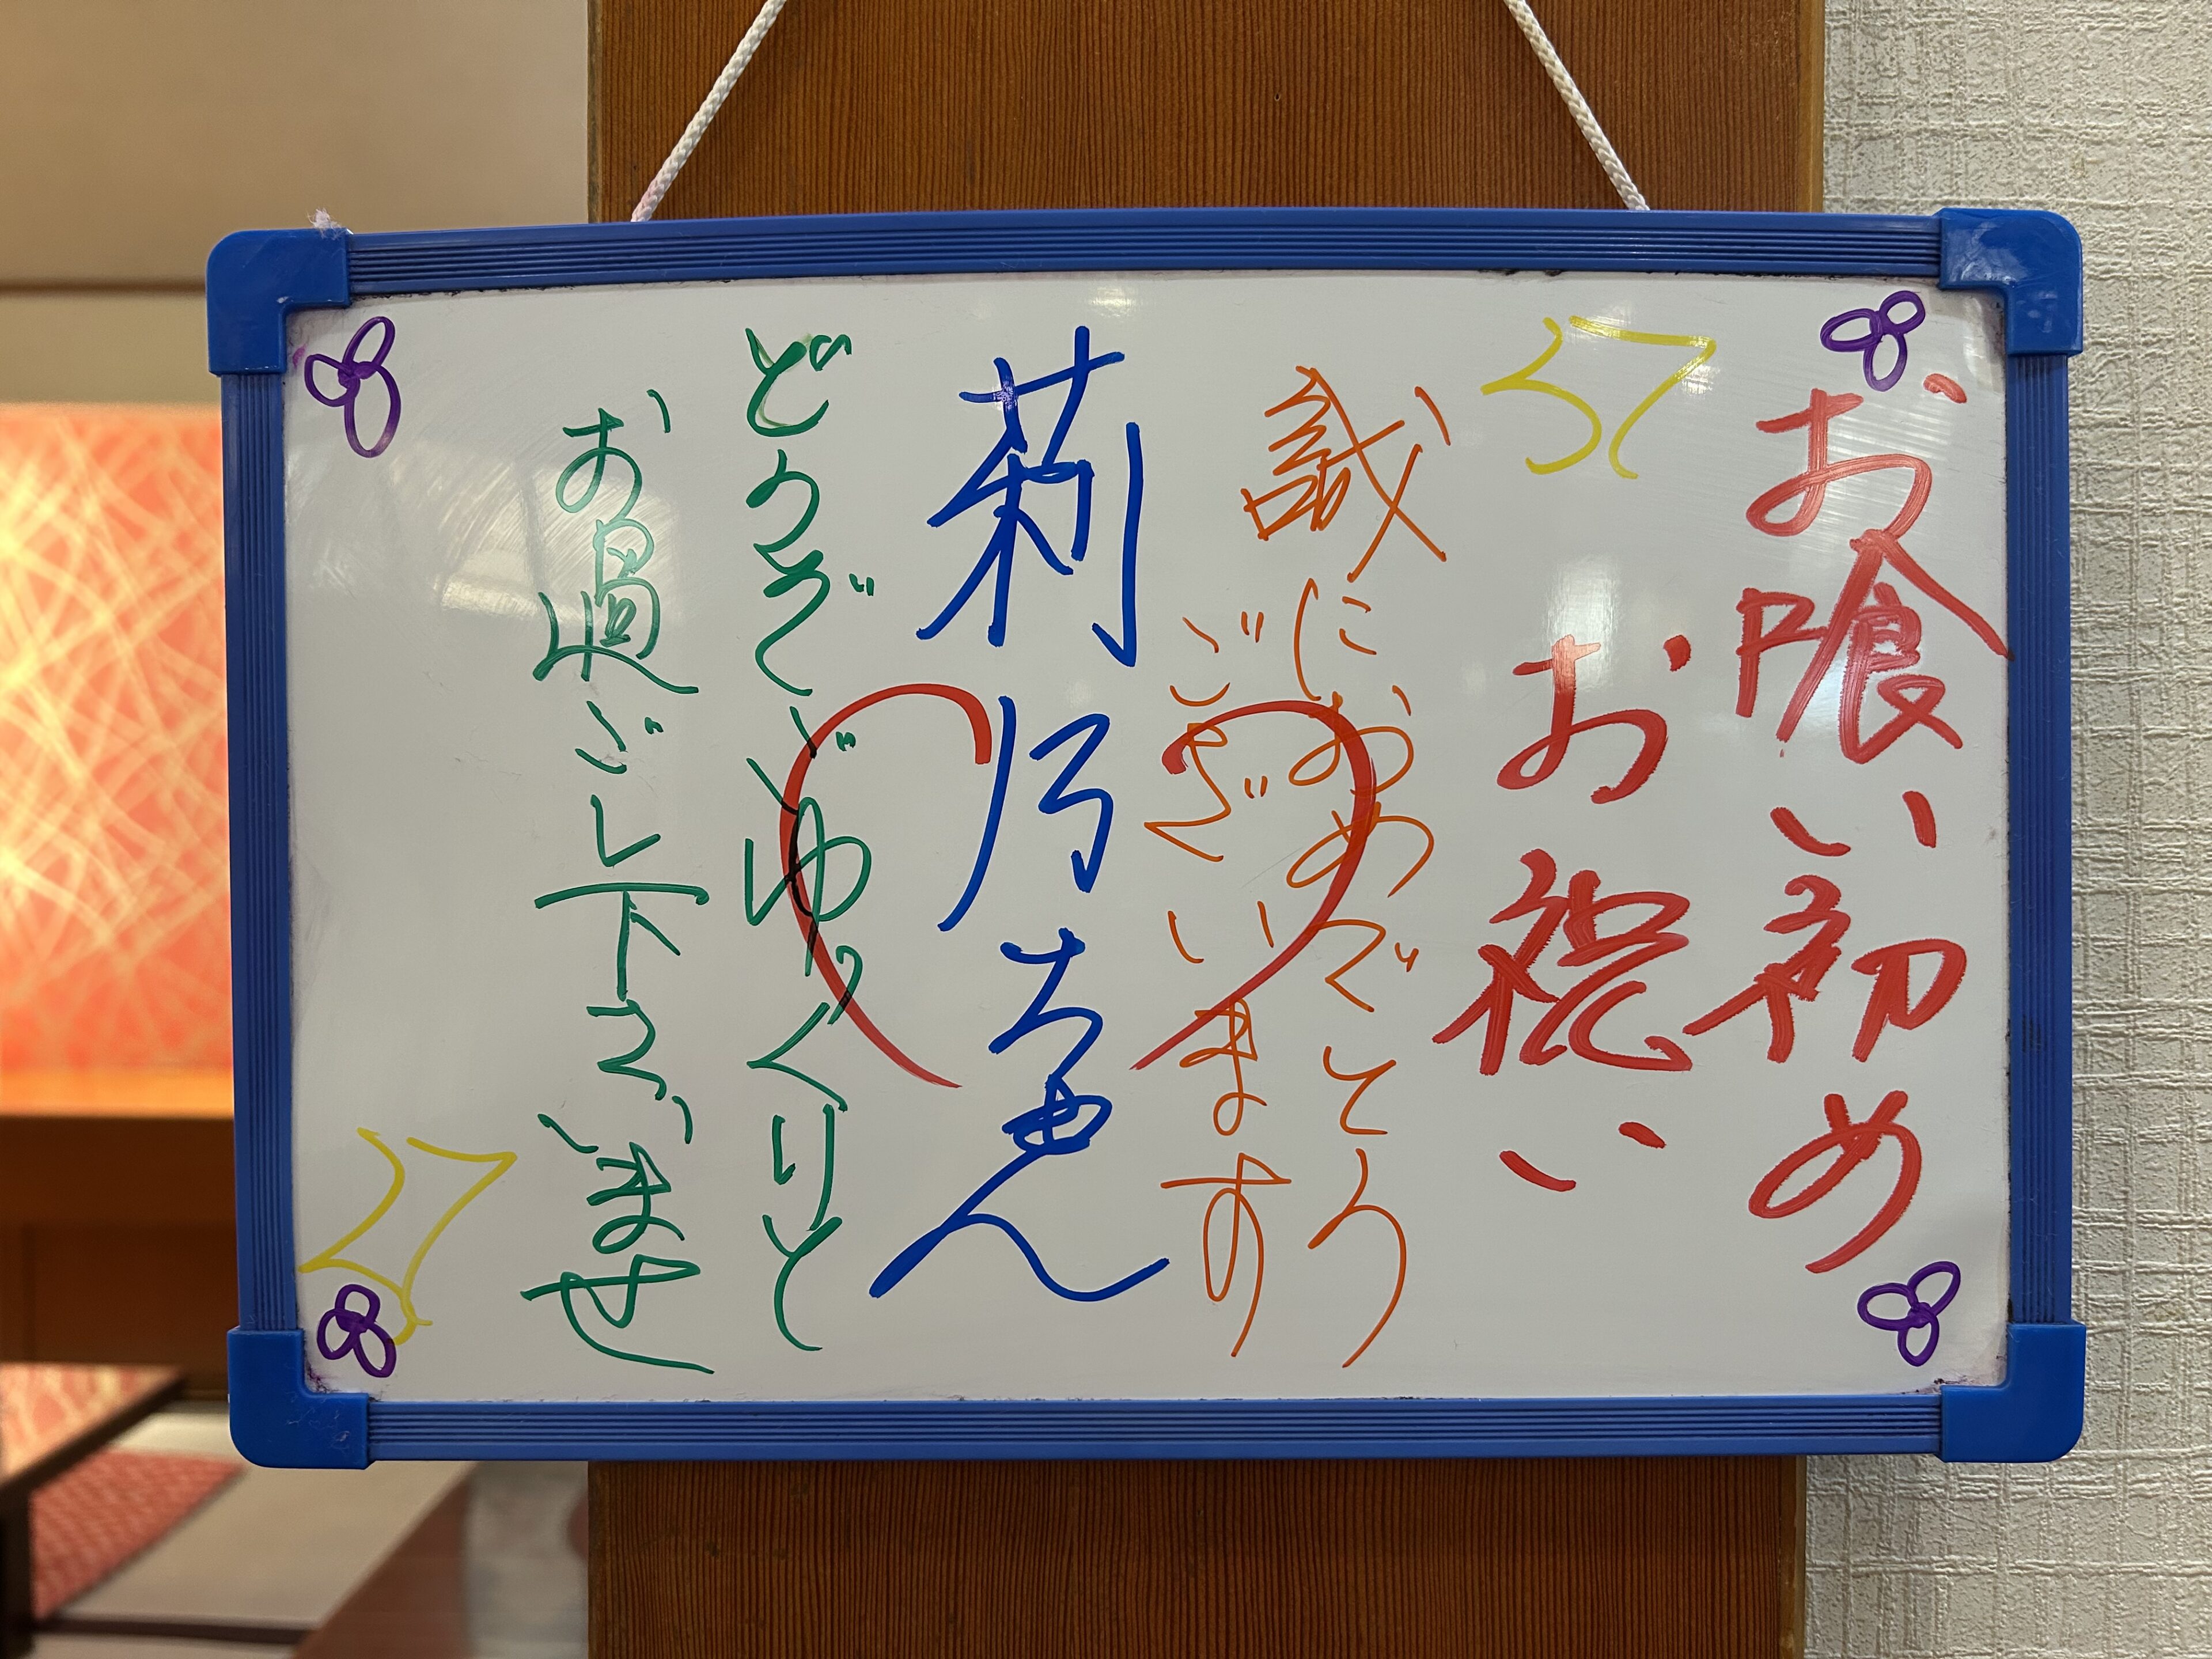 お喰い初め
お祝い
誠におめでとう
ございます
莉乃ちゃん
どうぞごゆっくりと
お過ごし下さいませ